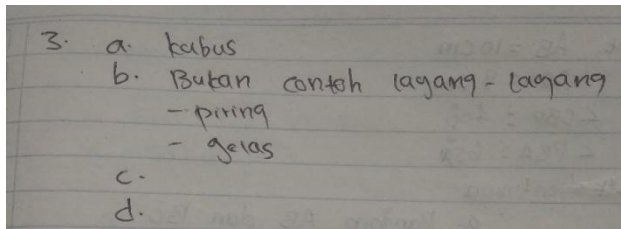 3. a. kubus
b. Bukan contoh layang - layang
- piring
- gelas
c.
d.